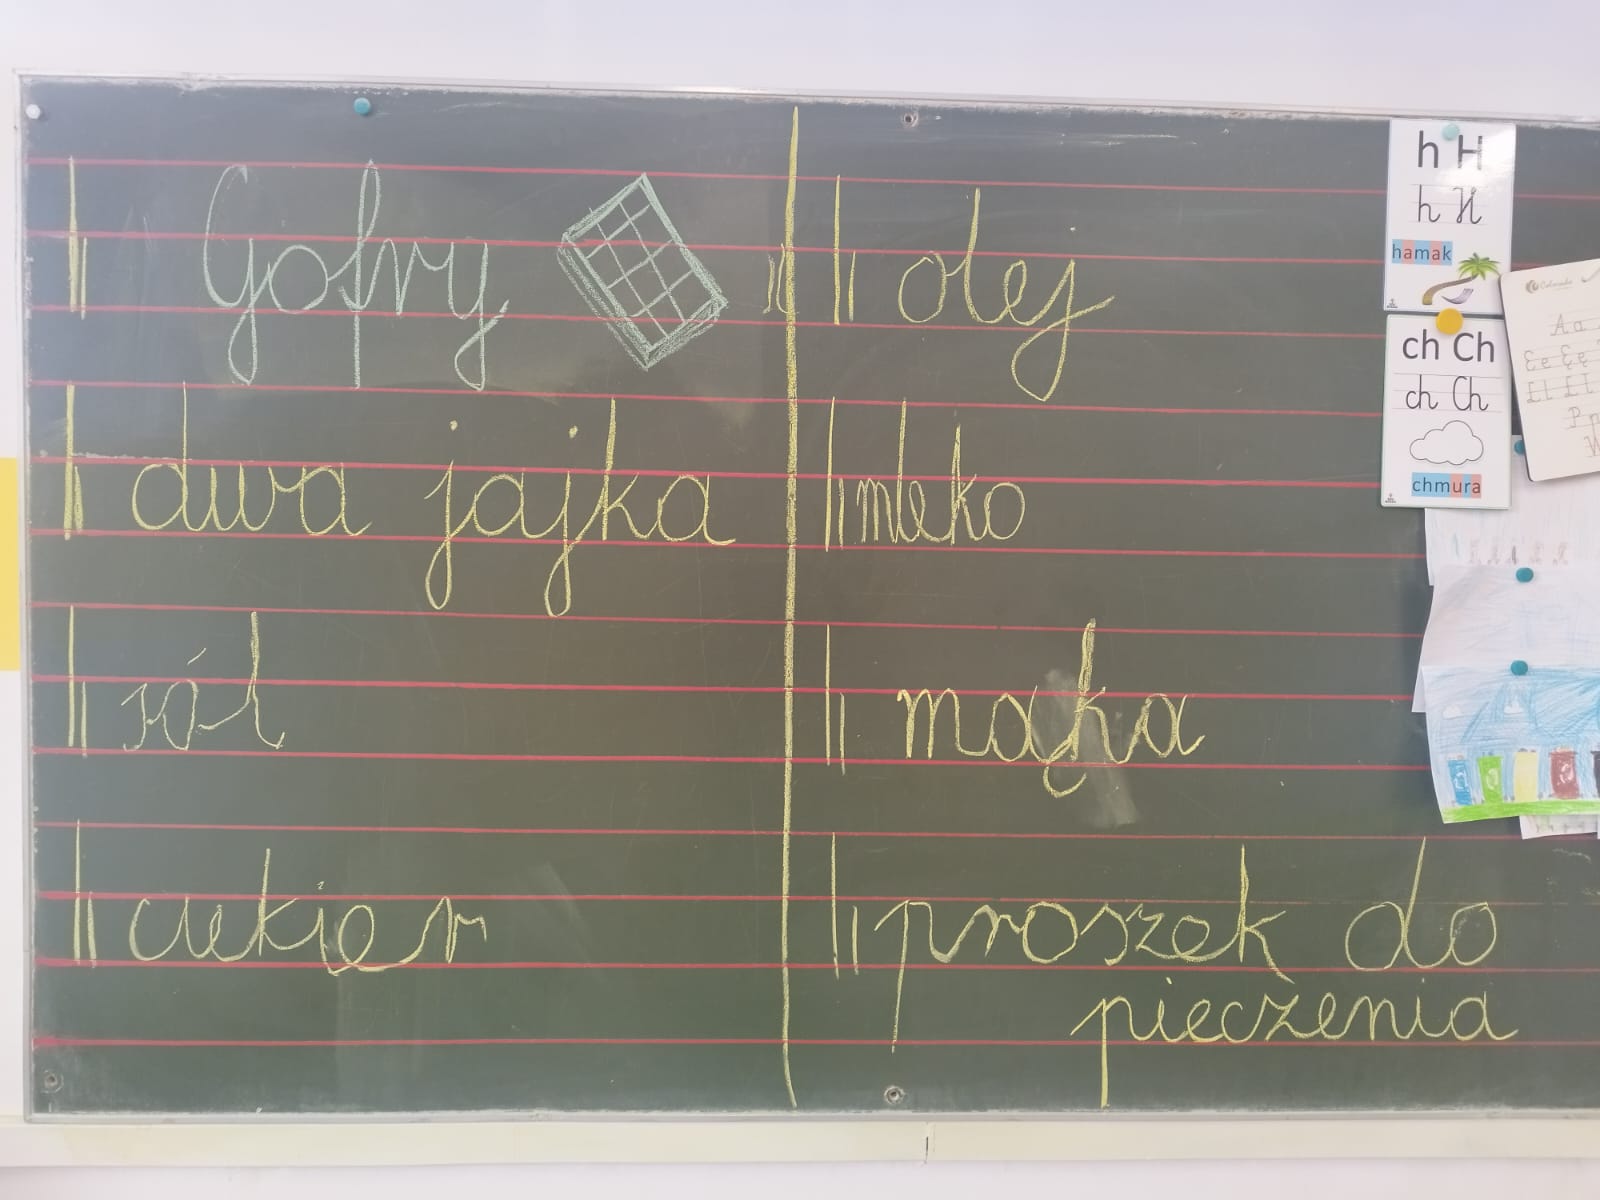 Gofry
dwa jajka
sól
cukier
olej
mleko
mąka
proszek do
pieczenia
h H
h H
hamak
ch Ch
ch Ch
chmura
A a
E e Ę ę
Ł ł
P p